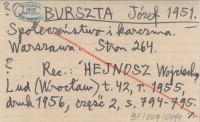 ? BURSZTA Józef 1951.
Społeczeństwo i karczma.
Warszawa. Stron 264.
? Rec.: HEJNOSZ Wojciech,
Lud (Wrocław) t. 42, r. 1955,
druk 1956, część 2, s. 794-795.